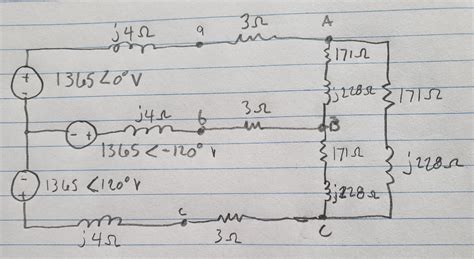 j4Ω a 3Ω A
+
-
1365∠0°V
171Ω
j228Ω
171Ω
j4Ω b 3Ω B
- +
1365∠-120°V
171Ω
j228Ω
-
+
1365∠120°V
j228Ω
j4Ω c 3Ω C